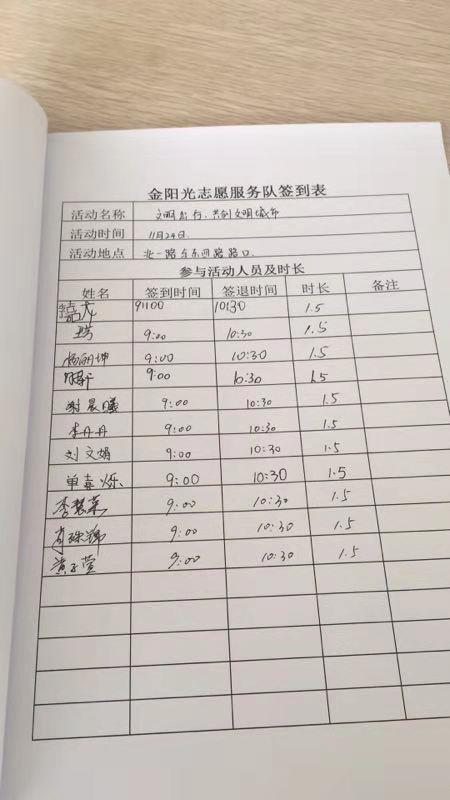 金阳光志愿服务队签到表
活动名称 文明出行,共创文明城市
活动时间 11月24日
活动地点 北一路与东四路路口
参与活动人员及时长
姓名 签到时间 签退时间 时长 备注
9:00 10:30 1.5
9:00 10:30 1.5
9:00 10:30 1.5
9:00 10:30 1.5
谢晨曦 9:00 10:30 1.5
李丹丹 9:00 10:30 1.5
刘文娟 9:00 10:30 1.5
单嘉烁 9:00 10:30 1.5
李慧荣 9:00 10:30 1.5
9:00 10:30 1.5
黄子萱 9:00 10:30 1.5